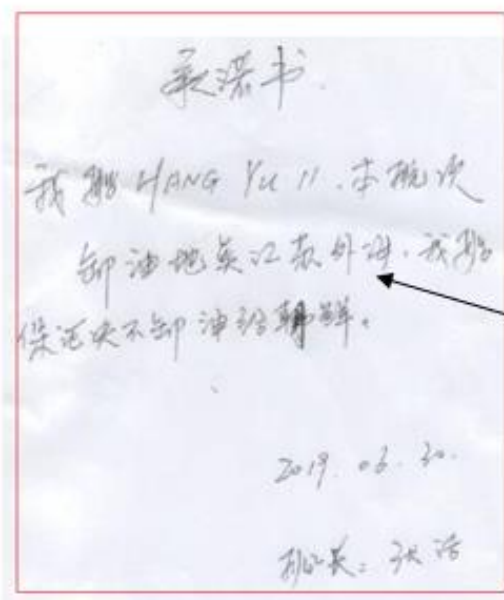 承诺书.
我船 HANG YU 11. 本航次
卸油地点江苏外海. 我船
保证决不卸油给朝鲜。
2019. 06. 30.
船长: 张